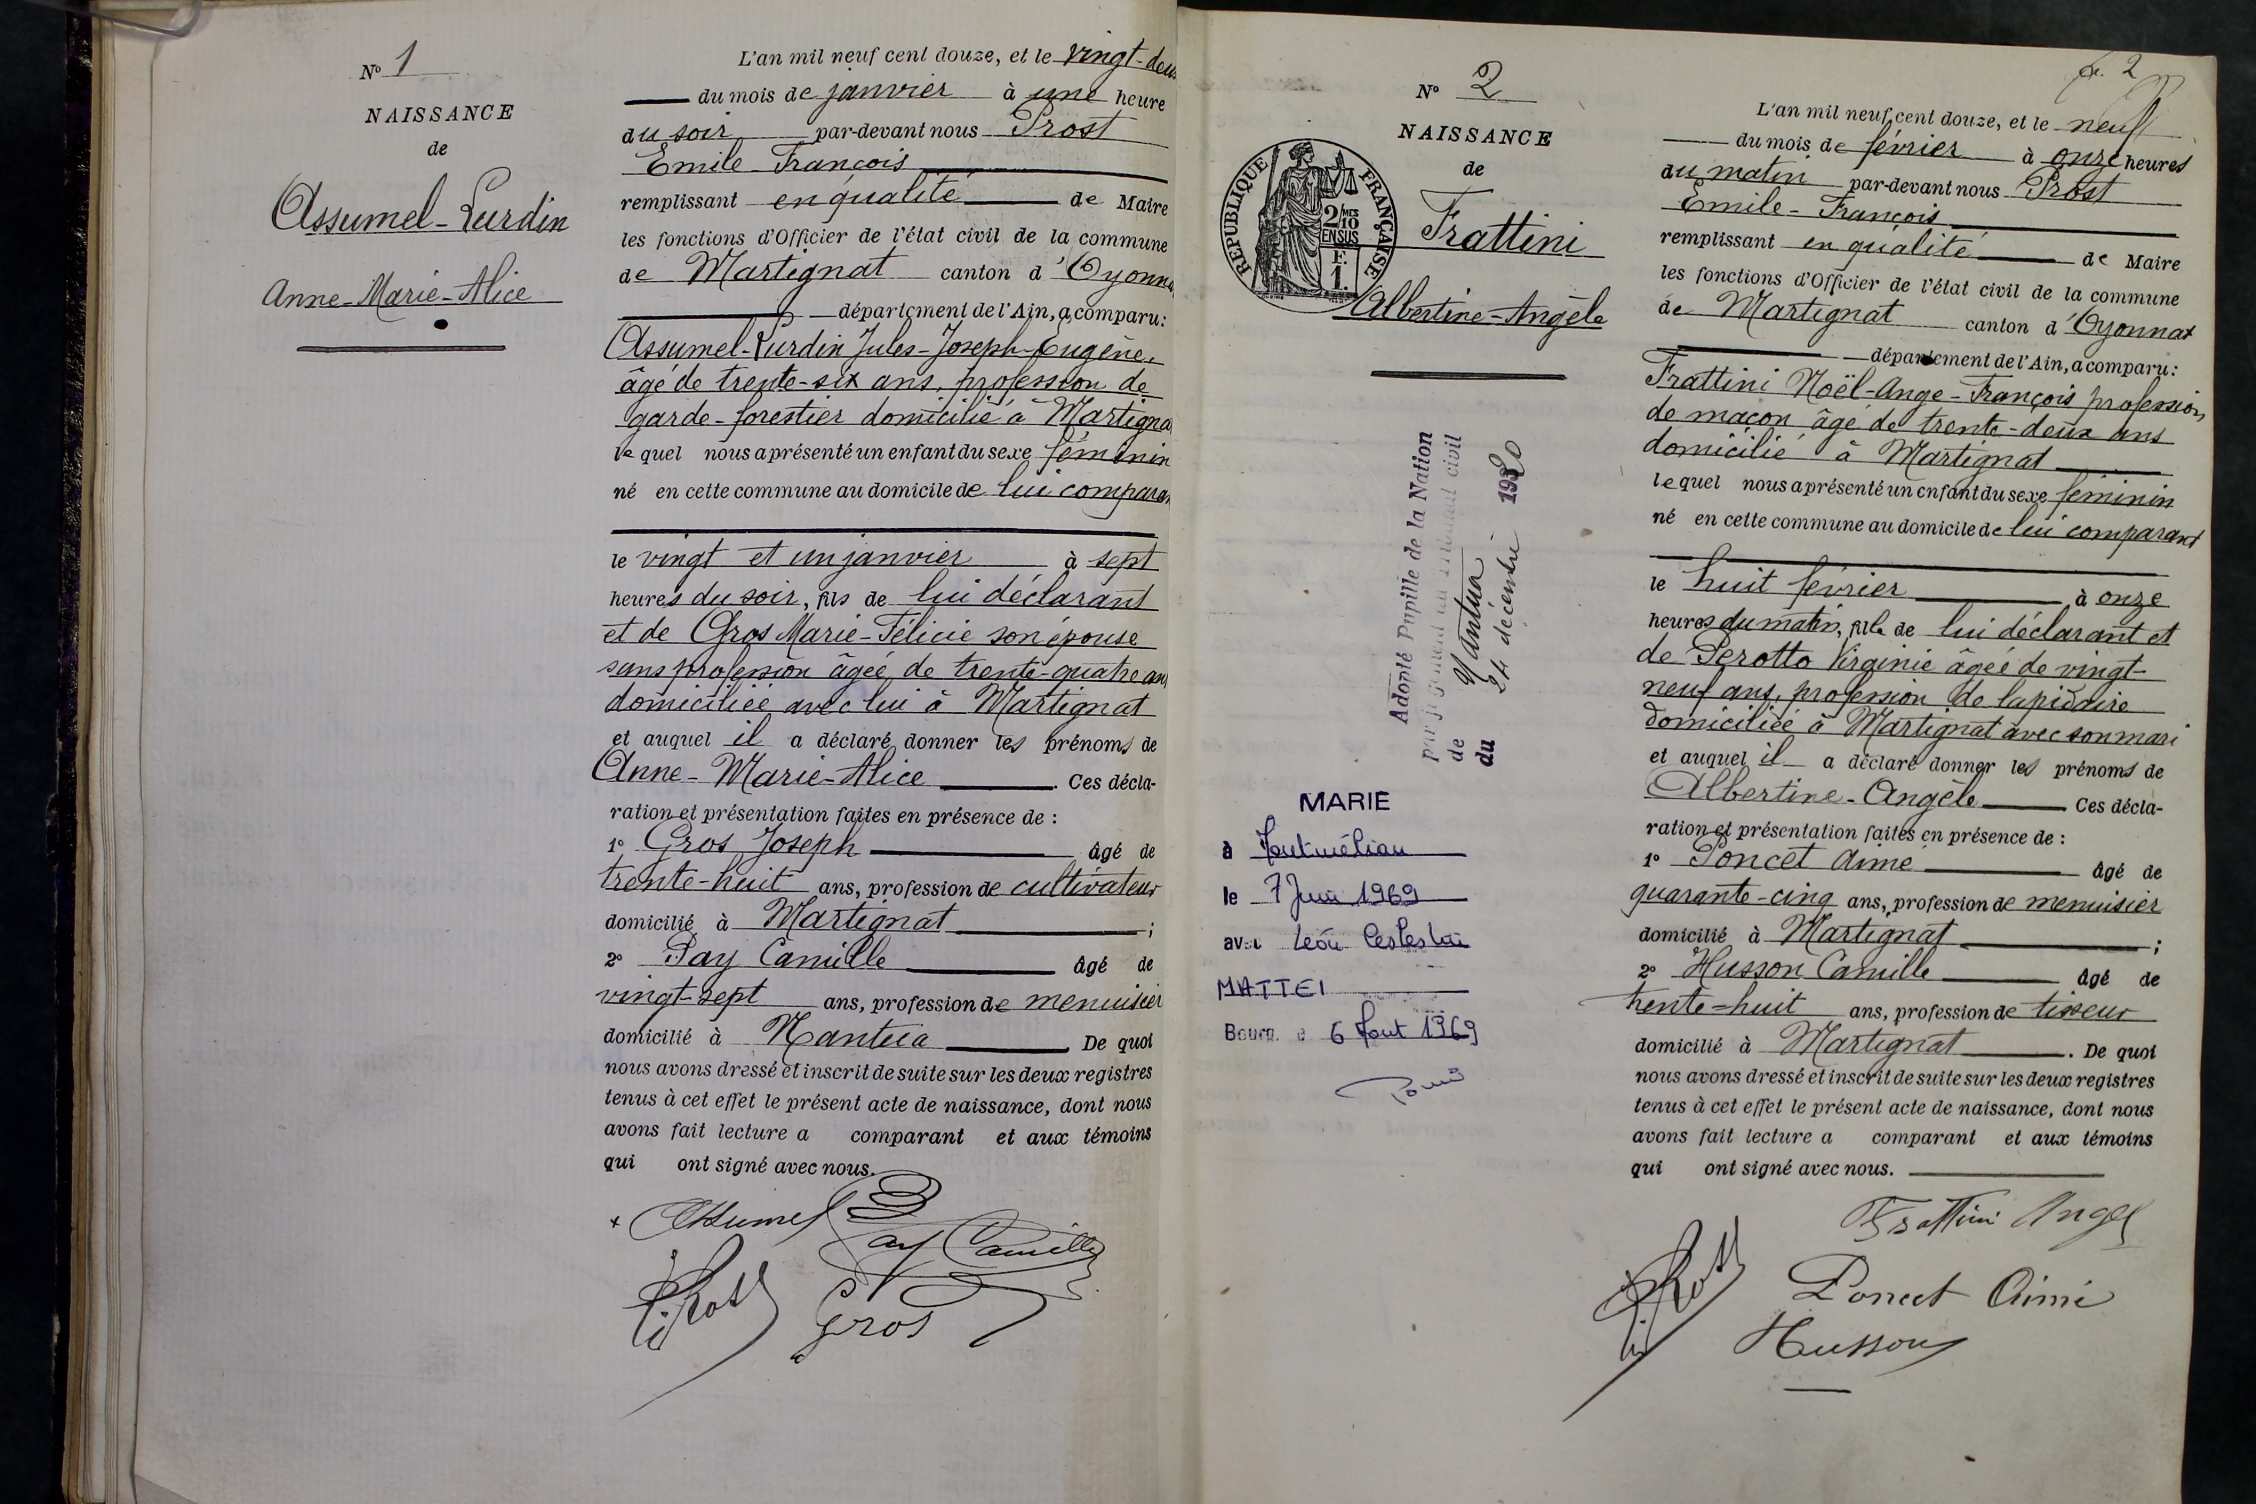 Nº 1
NAISSANCE
de
Assumel-Lurdin
Anne-Marie-Alice
L'an mil neuf cent douze, et le vingt-deux
du mois de janvier à une heure
du soir par-devant nous Prost
Emile-François
remplissant en qualité de Maire
les fonctions d'Officier de l'état civil de la commune
de Martignat canton d'Oyonna
département de l'Ain, a comparu:
Assumel-Lurdin Jules-Joseph-Eugène,
âgé de trente-six ans, profession de
garde-forestier domicilié à Martigna
lequel nous a présenté un enfant du sexe féminin
né en cette commune au domicile de lui comparan
le vingt et un janvier à sept
heures du soir, fils de lui déclarant
et de Gros Marie-Félicie son épouse
sans profession âgée de trente-quatre ans
domiciliée avec lui à Martignat
et auquel il a déclaré donner les prénoms de
Anne-Marie-Alice. Ces décla-
ration et présentation faites en présence de :
1º Gros Joseph âgé de
trente-huit ans, profession de cultivateur
domicilié à Martignat ;
2º Pay Camille âgé de
vingt-sept ans, profession de menuisier
domicilié à Nantua. De quoi
nous avons dressé et inscrit de suite sur les deux registres
tenus à cet effet le présent acte de naissance, dont nous
avons fait lecture a comparant et aux témoins
qui ont signé avec nous.
Assumel
Pay Camille
E. Prost
Gros
fo. 2
Nº 2
NAISSANCE
de
RÉPUBLIQUE FRANÇAISE
2/10 MES
EN SUS
F.
1.
Frattini
Albertine-Angèle
Adopté Pupille de la Nation
par jugement du tribunal civil
de Nantua
du 24 décembre 1920
MARIE
à Montmélian
le 7 Juin 1969
avec Léon
MATTEI
Bourg, le 6 Aout 1969
L'an mil neuf cent douze, et le neuf
du mois de février à onze heures
du matin par-devant nous Prost
Emile-François
remplissant en qualité de Maire
les fonctions d'Officier de l'état civil de la commune
de Martignat canton d'Oyonnax
département de l'Ain, a comparu:
Frattini Noël-Ange-François profession
de maçon âgé de trente-deux ans
domicilié à Martignat
lequel nous a présenté un enfant du sexe féminin
né en cette commune au domicile de lui comparant
le huit février à onze
heures du matin, fille de lui déclarant et
de Perotto Virginie âgée de vingt-
neuf ans, profession de lapidaire
domiciliée à Martignat avec son mari
et auquel il a déclaré donner les prénoms de
Albertine-Angèle Ces décla-
ration et présentation faites en présence de :
1º Poncet Aimé âgé de
quarante-cinq ans, profession de menuisier
domicilié à Martignat ;
2º Husson Camille âgé de
trente-huit ans, profession de tisseur
domicilié à Martignat. De quoi
nous avons dressé et inscrit de suite sur les deux registres
tenus à cet effet le présent acte de naissance, dont nous
avons fait lecture a comparant et aux témoins
qui ont signé avec nous.
Frattini Ange
E. Prost
Poncet Aimé
Husson